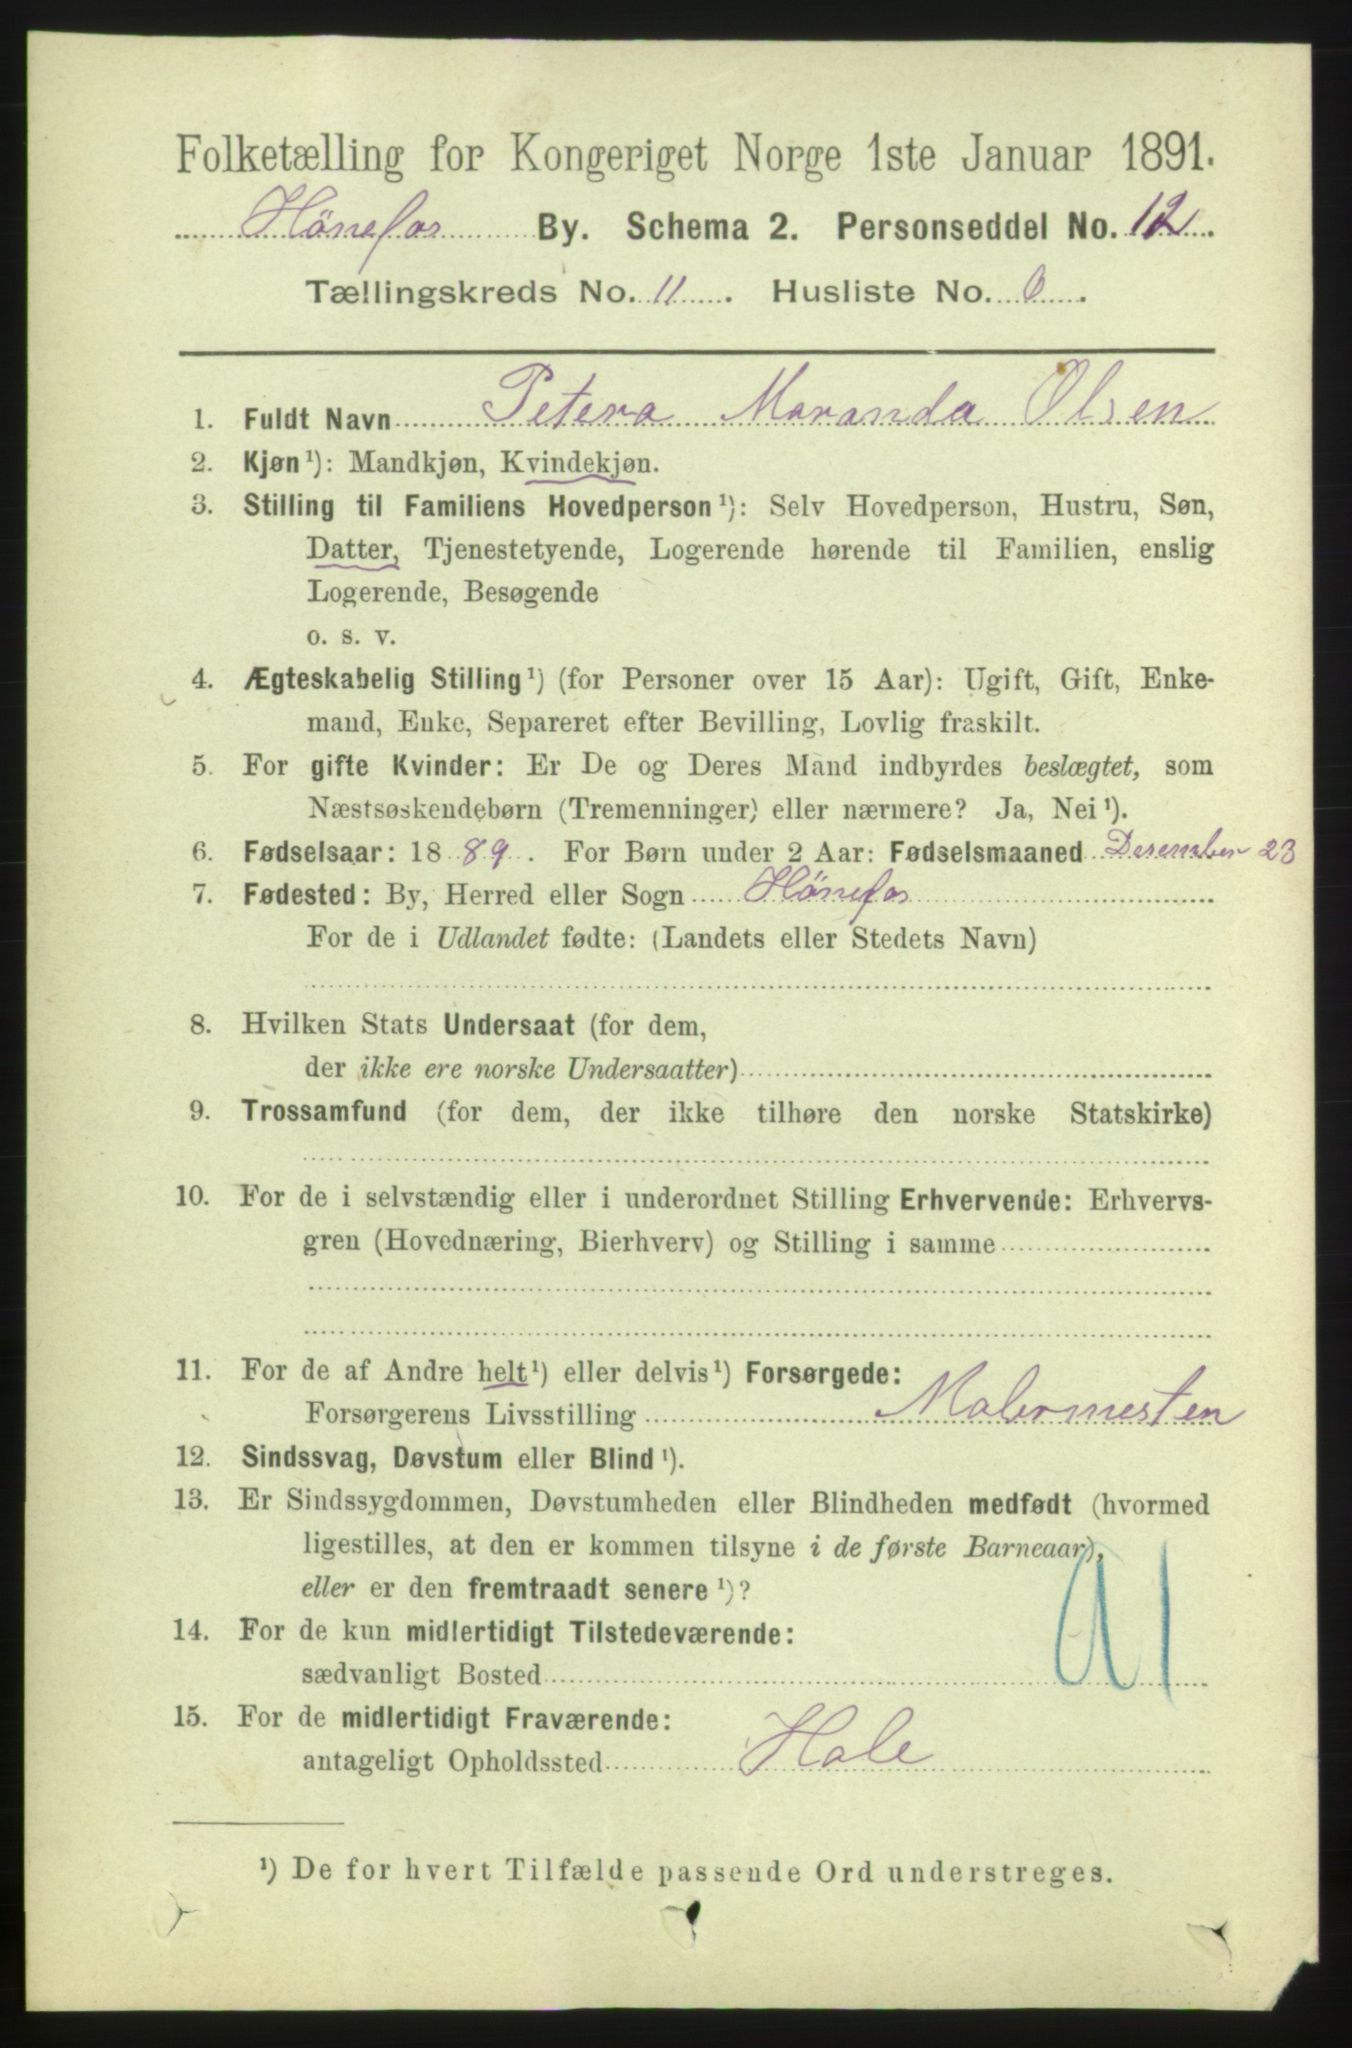 Folketælling for Kongeriget Norge 1ste Januar 1891.
Hönefos By. Schema 2. Personseddel No. 12.
Tællingskreds No. 11. Husliste No. 6.
1. Fuldt Navn Petera Maranda Olsen
2. Kjøn ¹): Mandkjøn, Kvindekjøn.
3. Stilling til Familiens Hovedperson ¹): Selv Hovedperson, Hustru, Søn,
Datter, Tjenestetyende, Logerende hørende til Familien, enslig
Logerende, Besøgende
o. s. v.
4. Ægteskabelig Stilling ¹) (for Personer over 15 Aar): Ugift, Gift, Enke-
mand, Enke, Separeret efter Bevilling, Lovlig fraskilt.
5. For gifte Kvinder: Er De og Deres Mand indbyrdes beslægtet, som
Næstsøskendebørn (Tremenninger) eller nærmere? Ja, Nei ¹).
6. Fødselsaar: 1889. For Børn under 2 Aar: Fødselsmaaned Desember 23
7. Fødested: By, Herred eller Sogn Hönefos
For de i Udlandet fødte: (Landets eller Stedets Navn)
8. Hvilken Stats Undersaat (for dem,
der ikke ere norske Undersaatter)
9. Trossamfund (for dem, der ikke tilhøre den norske Statskirke)
10. For de i selvstændig eller i underordnet Stilling Erhvervende: Erhvervs-
gren (Hovednæring, Bierhverv) og Stilling i samme
11. For de af Andre helt ¹) eller delvis ¹) Forsørgede:
Forsørgerens Livsstilling Malermesten
12. Sindssvag, Døvstum eller Blind ¹).
13. Er Sindssygdommen, Døvstumheden eller Blindheden medfødt (hvormed
ligestilles, at den er kommen tilsyne i de første Barneaar),
eller er den fremtraadt senere ¹)?
91
14. For de kun midlertidigt Tilstedeværende:
sædvanligt Bosted
15. For de midlertidigt Fraværende:
antageligt Opholdssted Hole
¹) De for hvert Tilfælde passende Ord understreges.